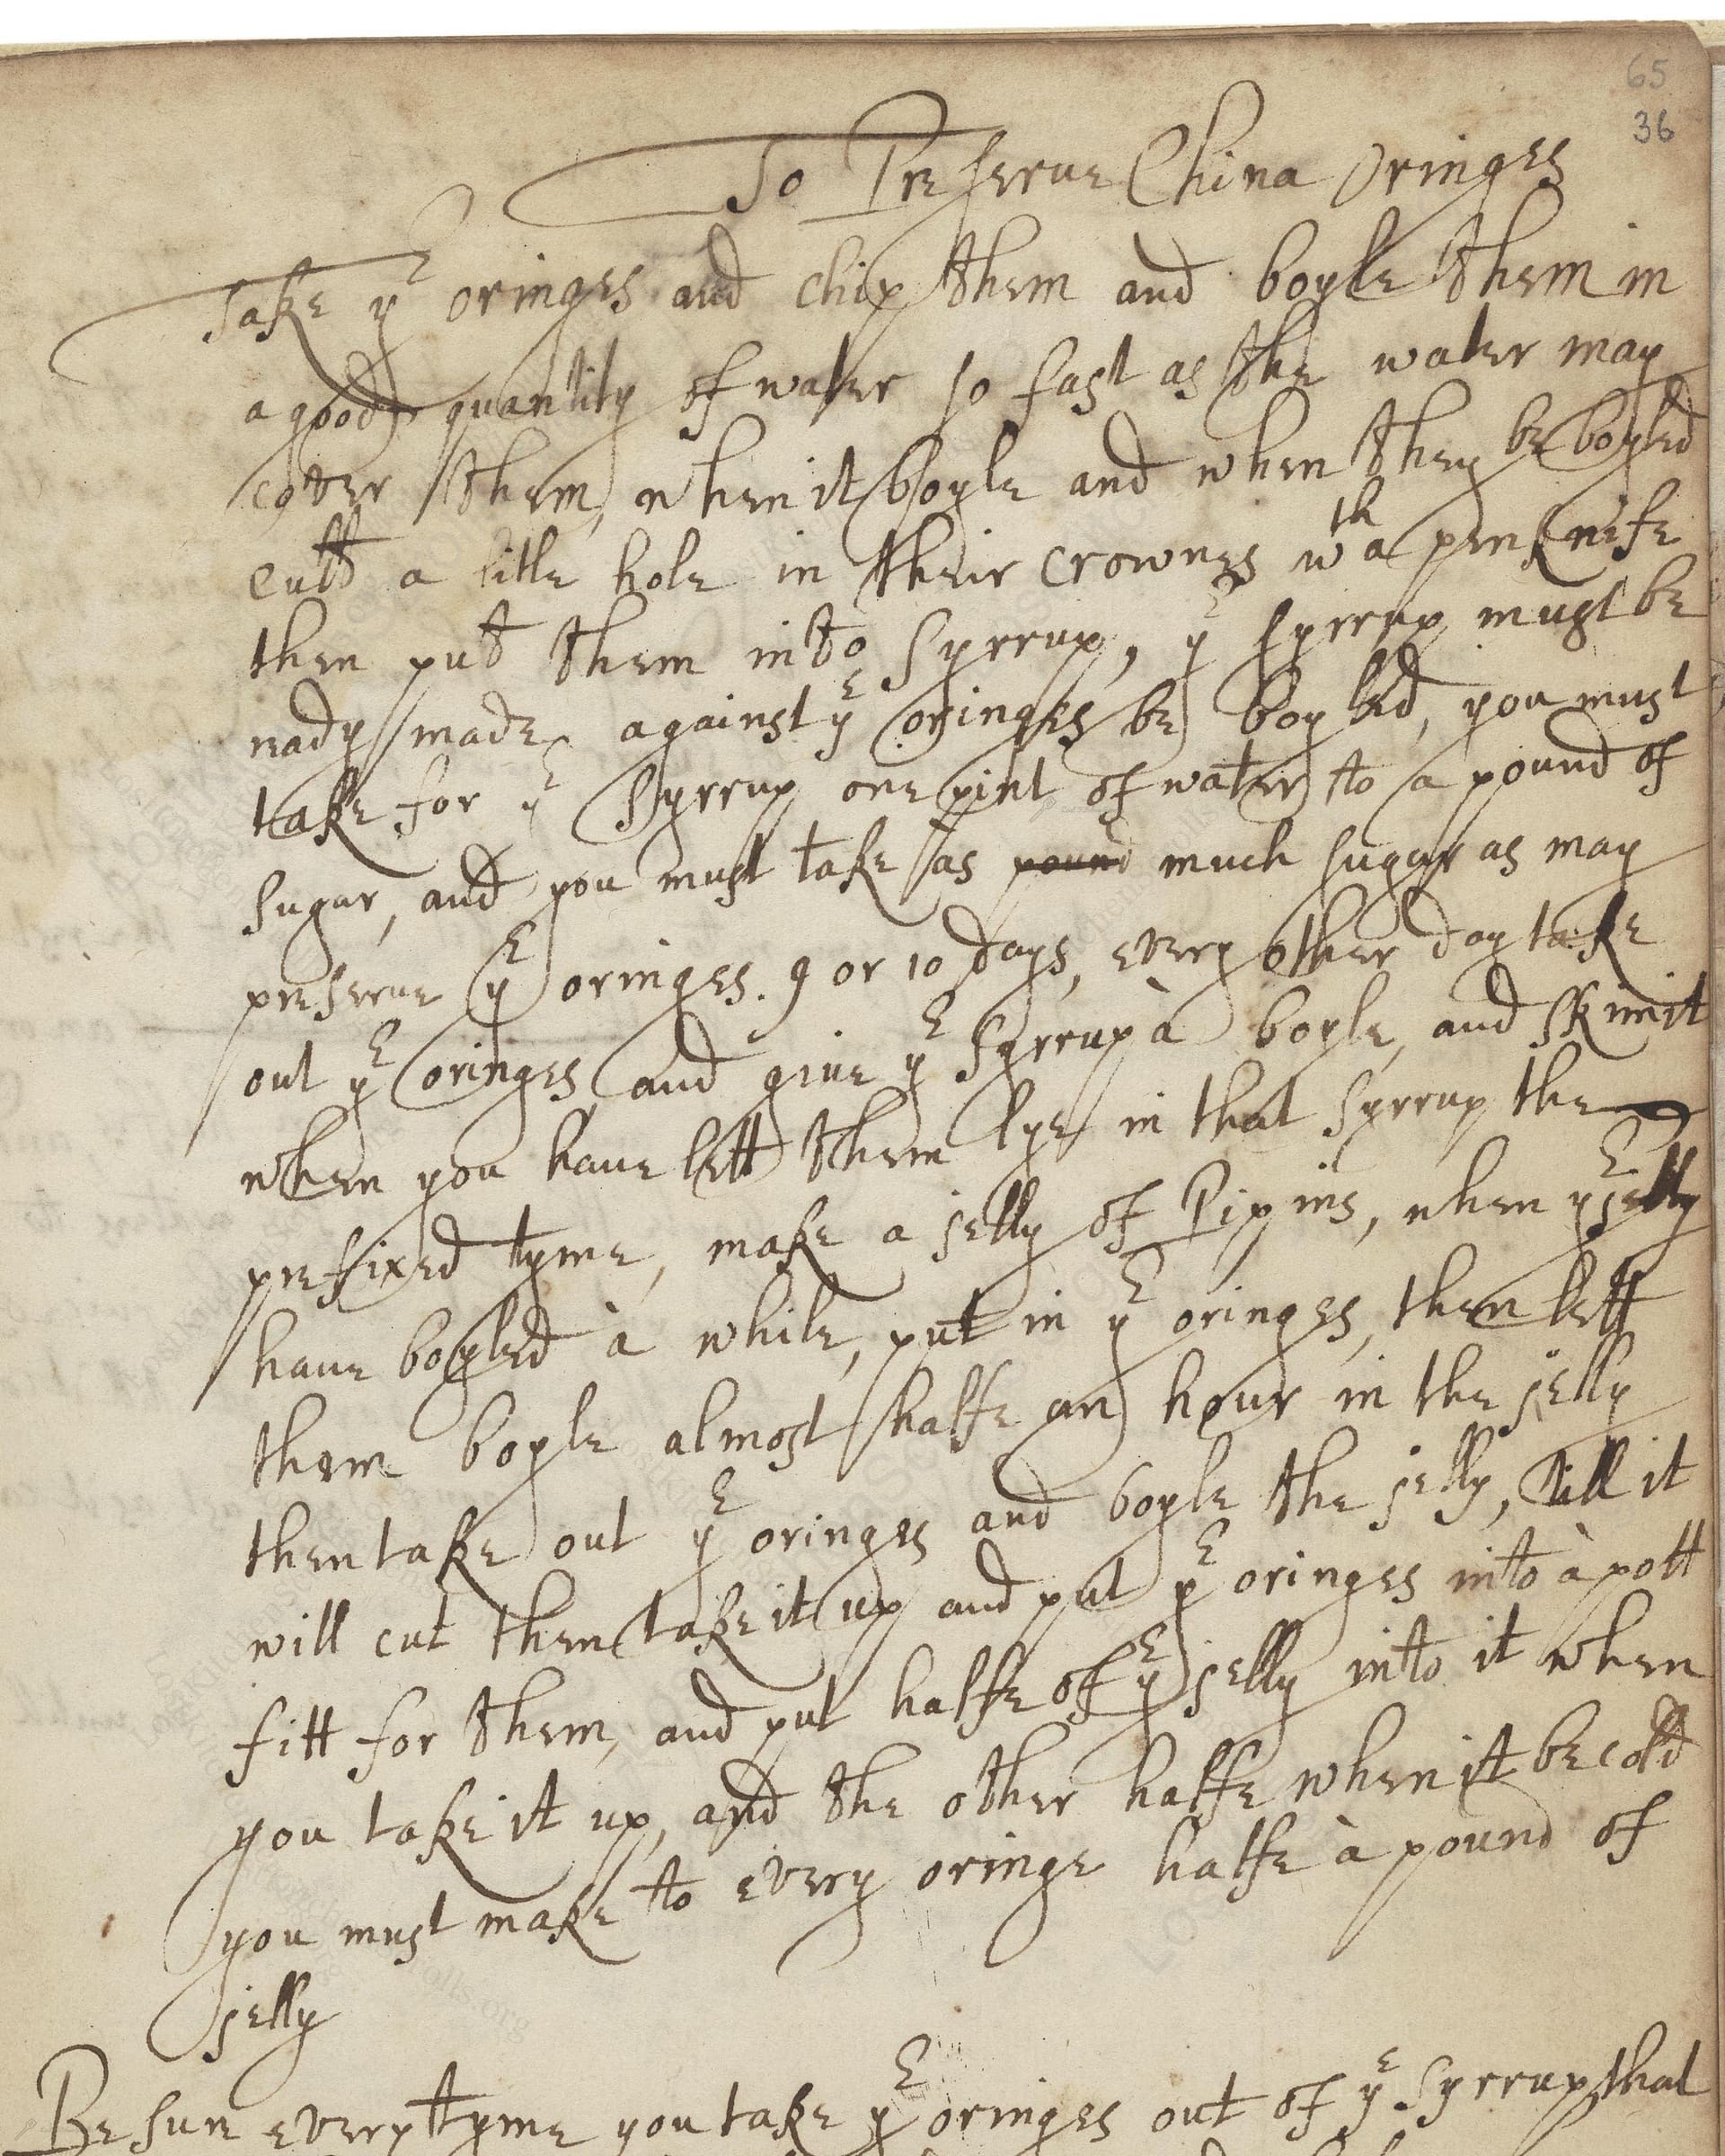 65
36
To Preserue China Oringes
Take yᵉ oringes and chip them and boyle them in
a good quantity of water so fast as the water may
cover them, when it boyle and when they be boyled
cutt a litle hole in their crownes wᵗʰ a penknife
then put them into Syrrup, yᵉ syrrup must be
redy made against yᵉ oringes be boyled, you must
take for yᵉ Syrrup one pint of water to a pound of
sugar, and you must take as ~~pound~~ much sugar as may
preserue yᵉ oringes. 9 or 10 days, every other day take
out yᵉ oringes and giue yᵉ Syrrup à boyle, and skim it
when you haue lett them lye in that Syrrup the
prefixed tyme, make a jelly of Pipins, when yᵉ jelly
haue boyled à while, put in yᵉ oringes, then lett
them boyle almost halfe an hour in the jelly
then take out yᵉ oringes and boyle the jelly, till it
will cut then take it up and put yᵉ oringes into à pott
fitt for them, and put halfe of yᵉ jelly into it when
you take it up, and the other halfe when it be cold
you must make to every oringe halfe à pound of
jelly
Be sure every tyme you take yᵉ oringes out of yᵉ Syrrup that